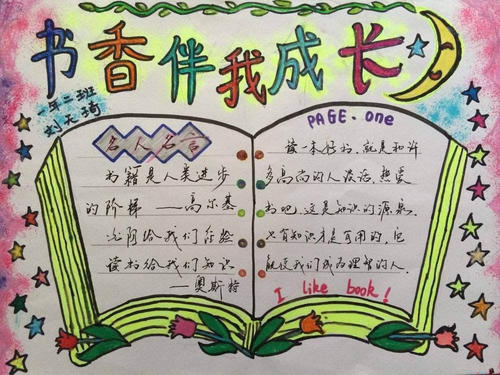 书香伴我成长
一年二班
刘天琦
名人名言
书籍是人类进步
的阶梯 ——高尔基
光阴给我们经验
读书给我们知识
——奥斯特
PAGE·one
读一本好书,就是和许
多高尚的人谈话,热爱
书吧,这是知识的源泉,
只有知识才是可用的,它
能使我们成为理智的人.
I like book!